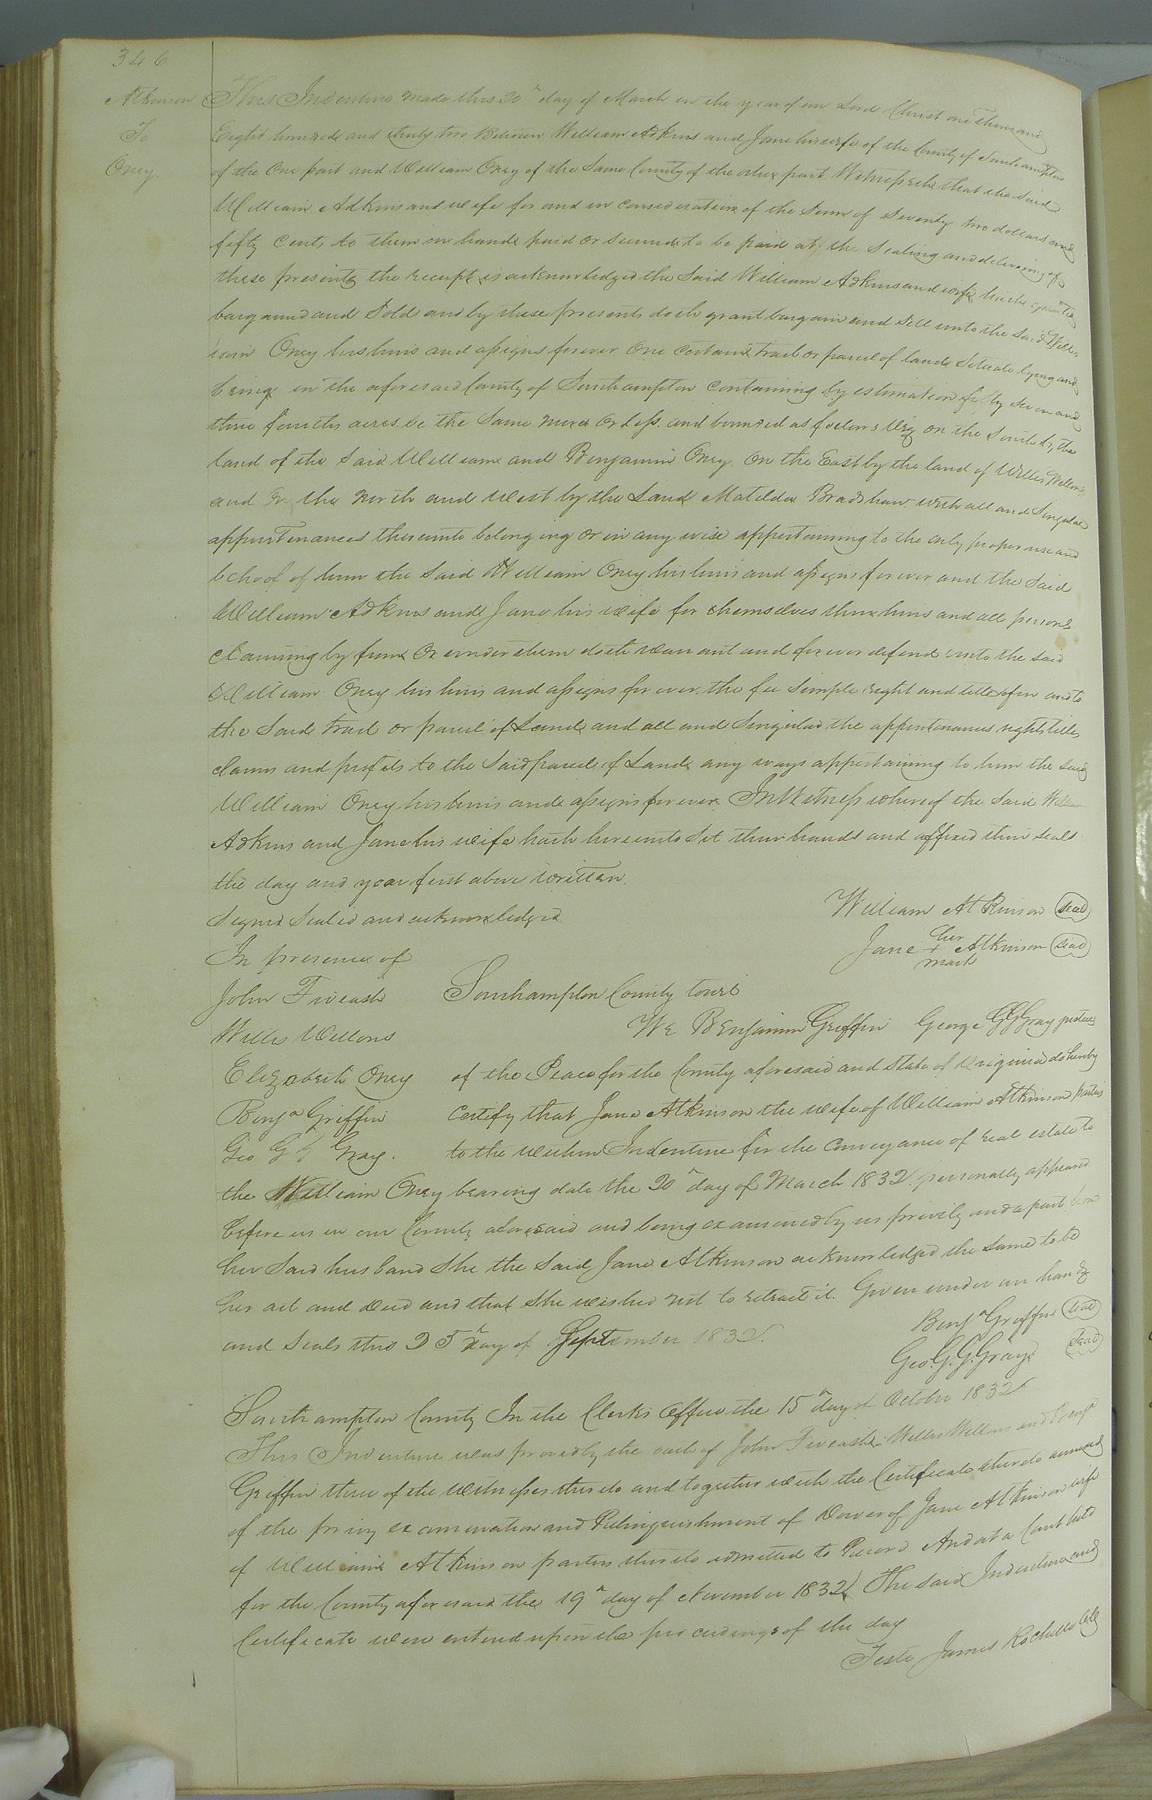 346
Atkinson
To
Oney
This Indenture made this 20th day of March in the year of our Lord Christ one Thousand
Eight hundred and thirty two Between William Adkins and Jane his wife of the County of Southampton
of the One part and William Oney of the Same County of the other part Witnesseth that the said
William Adkins and wife for and in consideration of the Sum of Seventy two dollars and
fifty Cents to them in hand paid or secured to be paid at the Sealing and delivering of
these presents the receipt is acknowledged the Said William Adkins and wife hath granted
bargained and Sold and by these presents doth grant bargain and sell unto the Said Will
iam Oney his heirs and assigns forever One certain tract or parcel of land Situate lying and
being in the aforesaid County of Southampton Containing by estimation fifty seven and
three fourths acres be the Same more or less. and bounded as follows Viz on the South by the
land of the Said William and Benjamin Oney On the East by the land of Willis Wellons
and on the North and West by the Land Matilda Bradshaw with all and Singular
appurtenances thereunto belonging or in any wise appertaining to the only proper use and
behoof of him the Said William Oney his heirs and assigns forever and the Said
William Adkins and Jane his wife for themselves their heirs and all persons
Claiming by from Or under them doth warrant and forever defend unto the said
William Oney his heirs and assigns forever the fee Simple right and title of in and to
the Said tract or parcel of Land and all and Singular the appurtenances rights titles
claims and profits to the Said parcel of Land any ways appertaining to him the said
William Oney his heirs and assigns forever In Witness whereof the Said William
Adkins and Jane his wife hath hereunto Set their hands and affixed their seals
the day and year first above written.
Signed Sealed and acknowledged
In presence of
John Fiveash
Willis Wellons
Elizabeth Oney
Benja Griffin
Geo G G Gray.
William Atkinson seal
her
Jane + Atkinson seal
mark
Southampton County towit
We Benjamin Griffin George G G Gray justices
of the Peace for the County aforesaid and State of Virginia do hereby
Certify that Jane Atkinson the wife of William Atkinson parties
to the within Indenture for the Conveyance of real estate to
the William Oney bearing date the 20th day of March 1832 personally appeared
before us in our County aforesaid and being examined by us privily and apart from
her Said husband She the Said Jane Atkinson acknowledged the Same to be
her act and deed and that She wished not to retract it. Given under our hands
and Seals this 25th day of September 1832.
Benja Griffin seal
Geo. G. G. Gray seal
Southampton County In the Clerks Office the 15th day of October 1832
This Indenture was proved by the oath of John Fiveash Willis Wellons and Benja
Griffin three of the witnesses thereto and together with the Certificate thereto annexed
of the privy examination and Relinquishment of Dower of Jane Atkinson wife
of William Atkinson parties thereto admitted to Record And at a Court held
for the County aforesaid the 19th day of November 1832 The Said Indenture and
Certificate were entered upon the proceedings of the day
Teste James Rochelle Clk